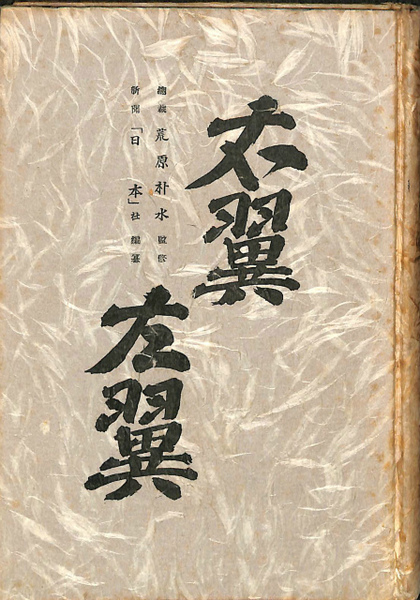 右翼
左翼
總裁 荒原朴水 監修
新聞「日本」社 編纂